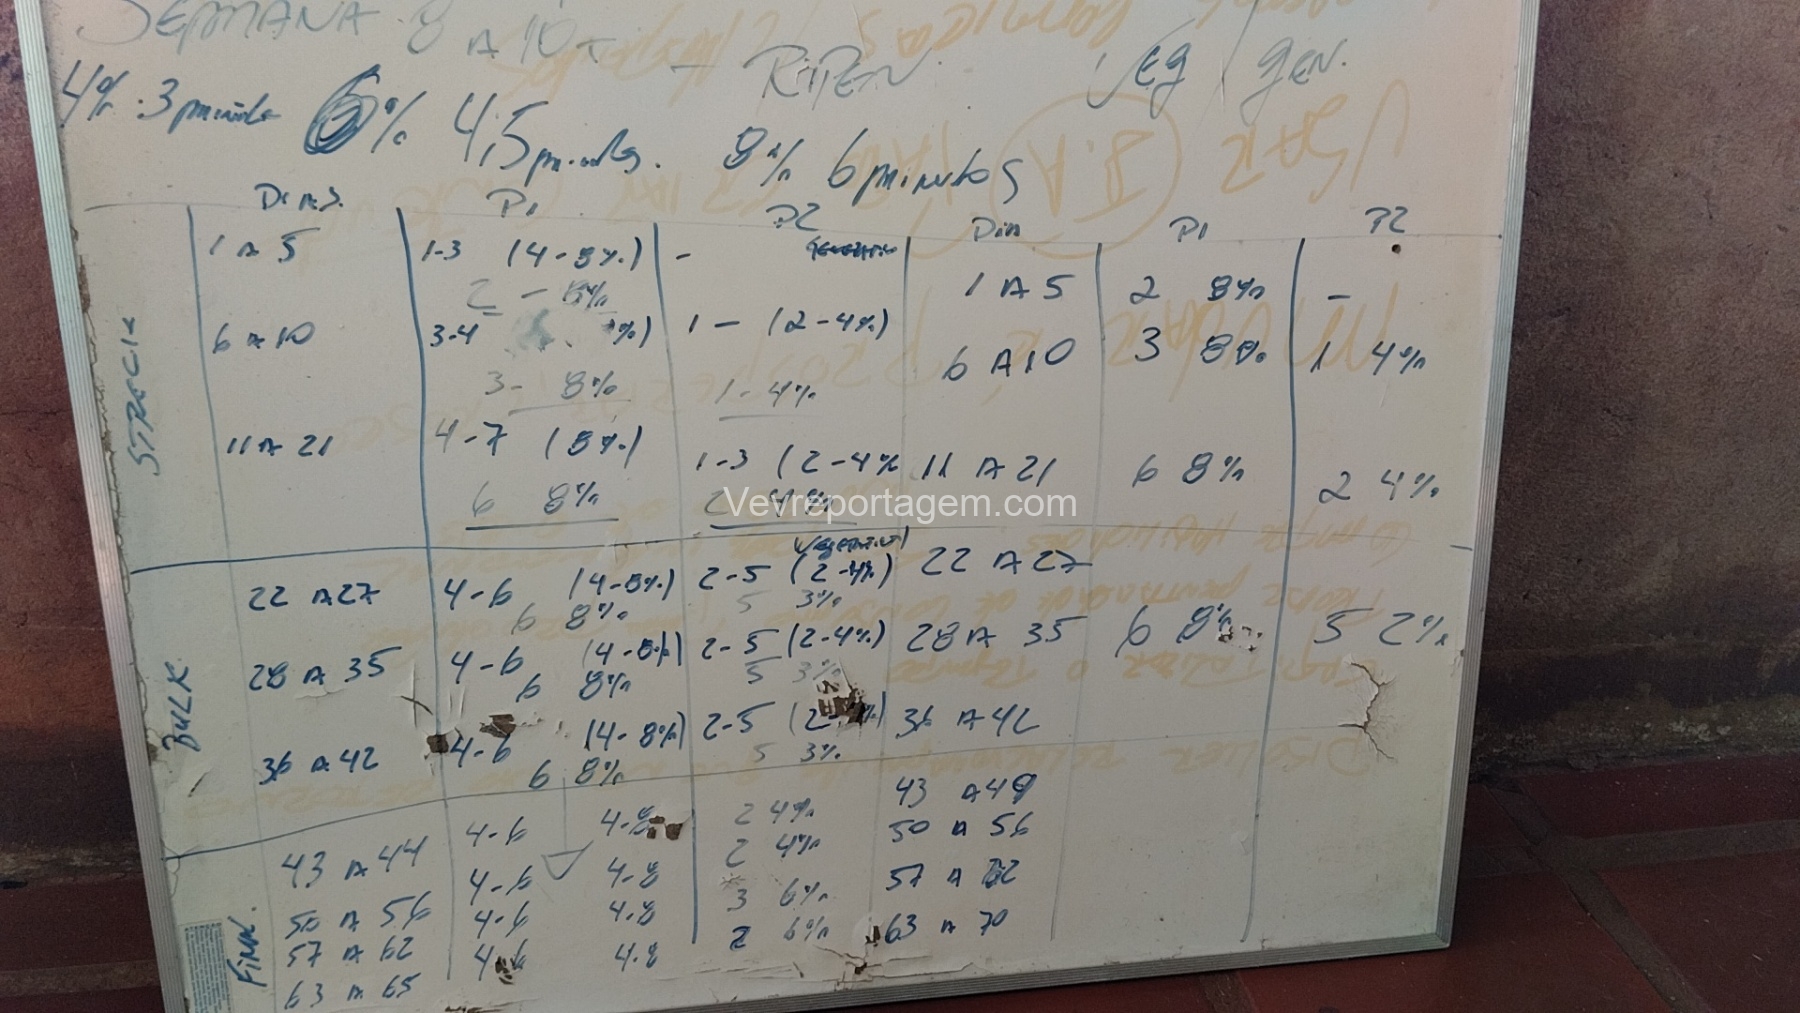 SEMANA 8 A 10 - RIPEN VEG / GEN.
4% . 3 pminuto 6% 4,5 pminutos. 8% 6 pminutos
DIAS. P1 P2 Dia P1 P2
STRECIA
1 A 5 1-3 (4-8%) - 1 A 5 2 8% -
2 - 8%
6 A 10 3-4 %) 1 - (2-4%) 6 A 10 3 8% 1 4%
3- 8% 1-4%
11 A 21 4-7 (8%) 1-3 (2-4% 11 A 21 6 8% 2 4%
6 8% 2 4%
Vevreportagem.com
BULK
22 A 27 4-6 (4-8%) 2-5 (2-4%) 22 A 27
6 8% 5 3%
28 A 35 4-6 (4-8%) 2-5 (2-4%) 28 A 35 6 8% 5 2%
6 8% 5 3%
36 A 42 4-6 (4-8%) 2-5 (2-4%) 36 A 42
6 8% 5 3%
FINK.
43 A 44 4-6 4-8 2 4% 43 A 49
50 A 56 4-6 4-8 2 4% 50 A 56
57 A 62 4-6 4-8 3 6% 57 A 62
63 A 65 4-6 4-8 2 6% 63 A 70